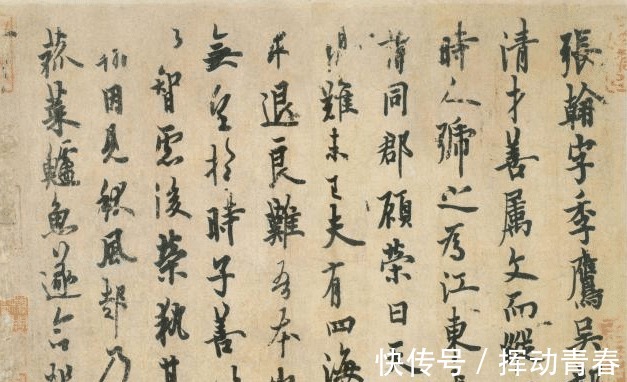 張翰字季鷹吳
清才善属文而縱
時人號之為江東
謂同郡顧榮曰
難未已夫有四海
求退良難吾本山
無望於時子善
智慮後榮執其
翰因見秋風起乃
菰菜鱸魚遂命
快传号 / 挥动青春